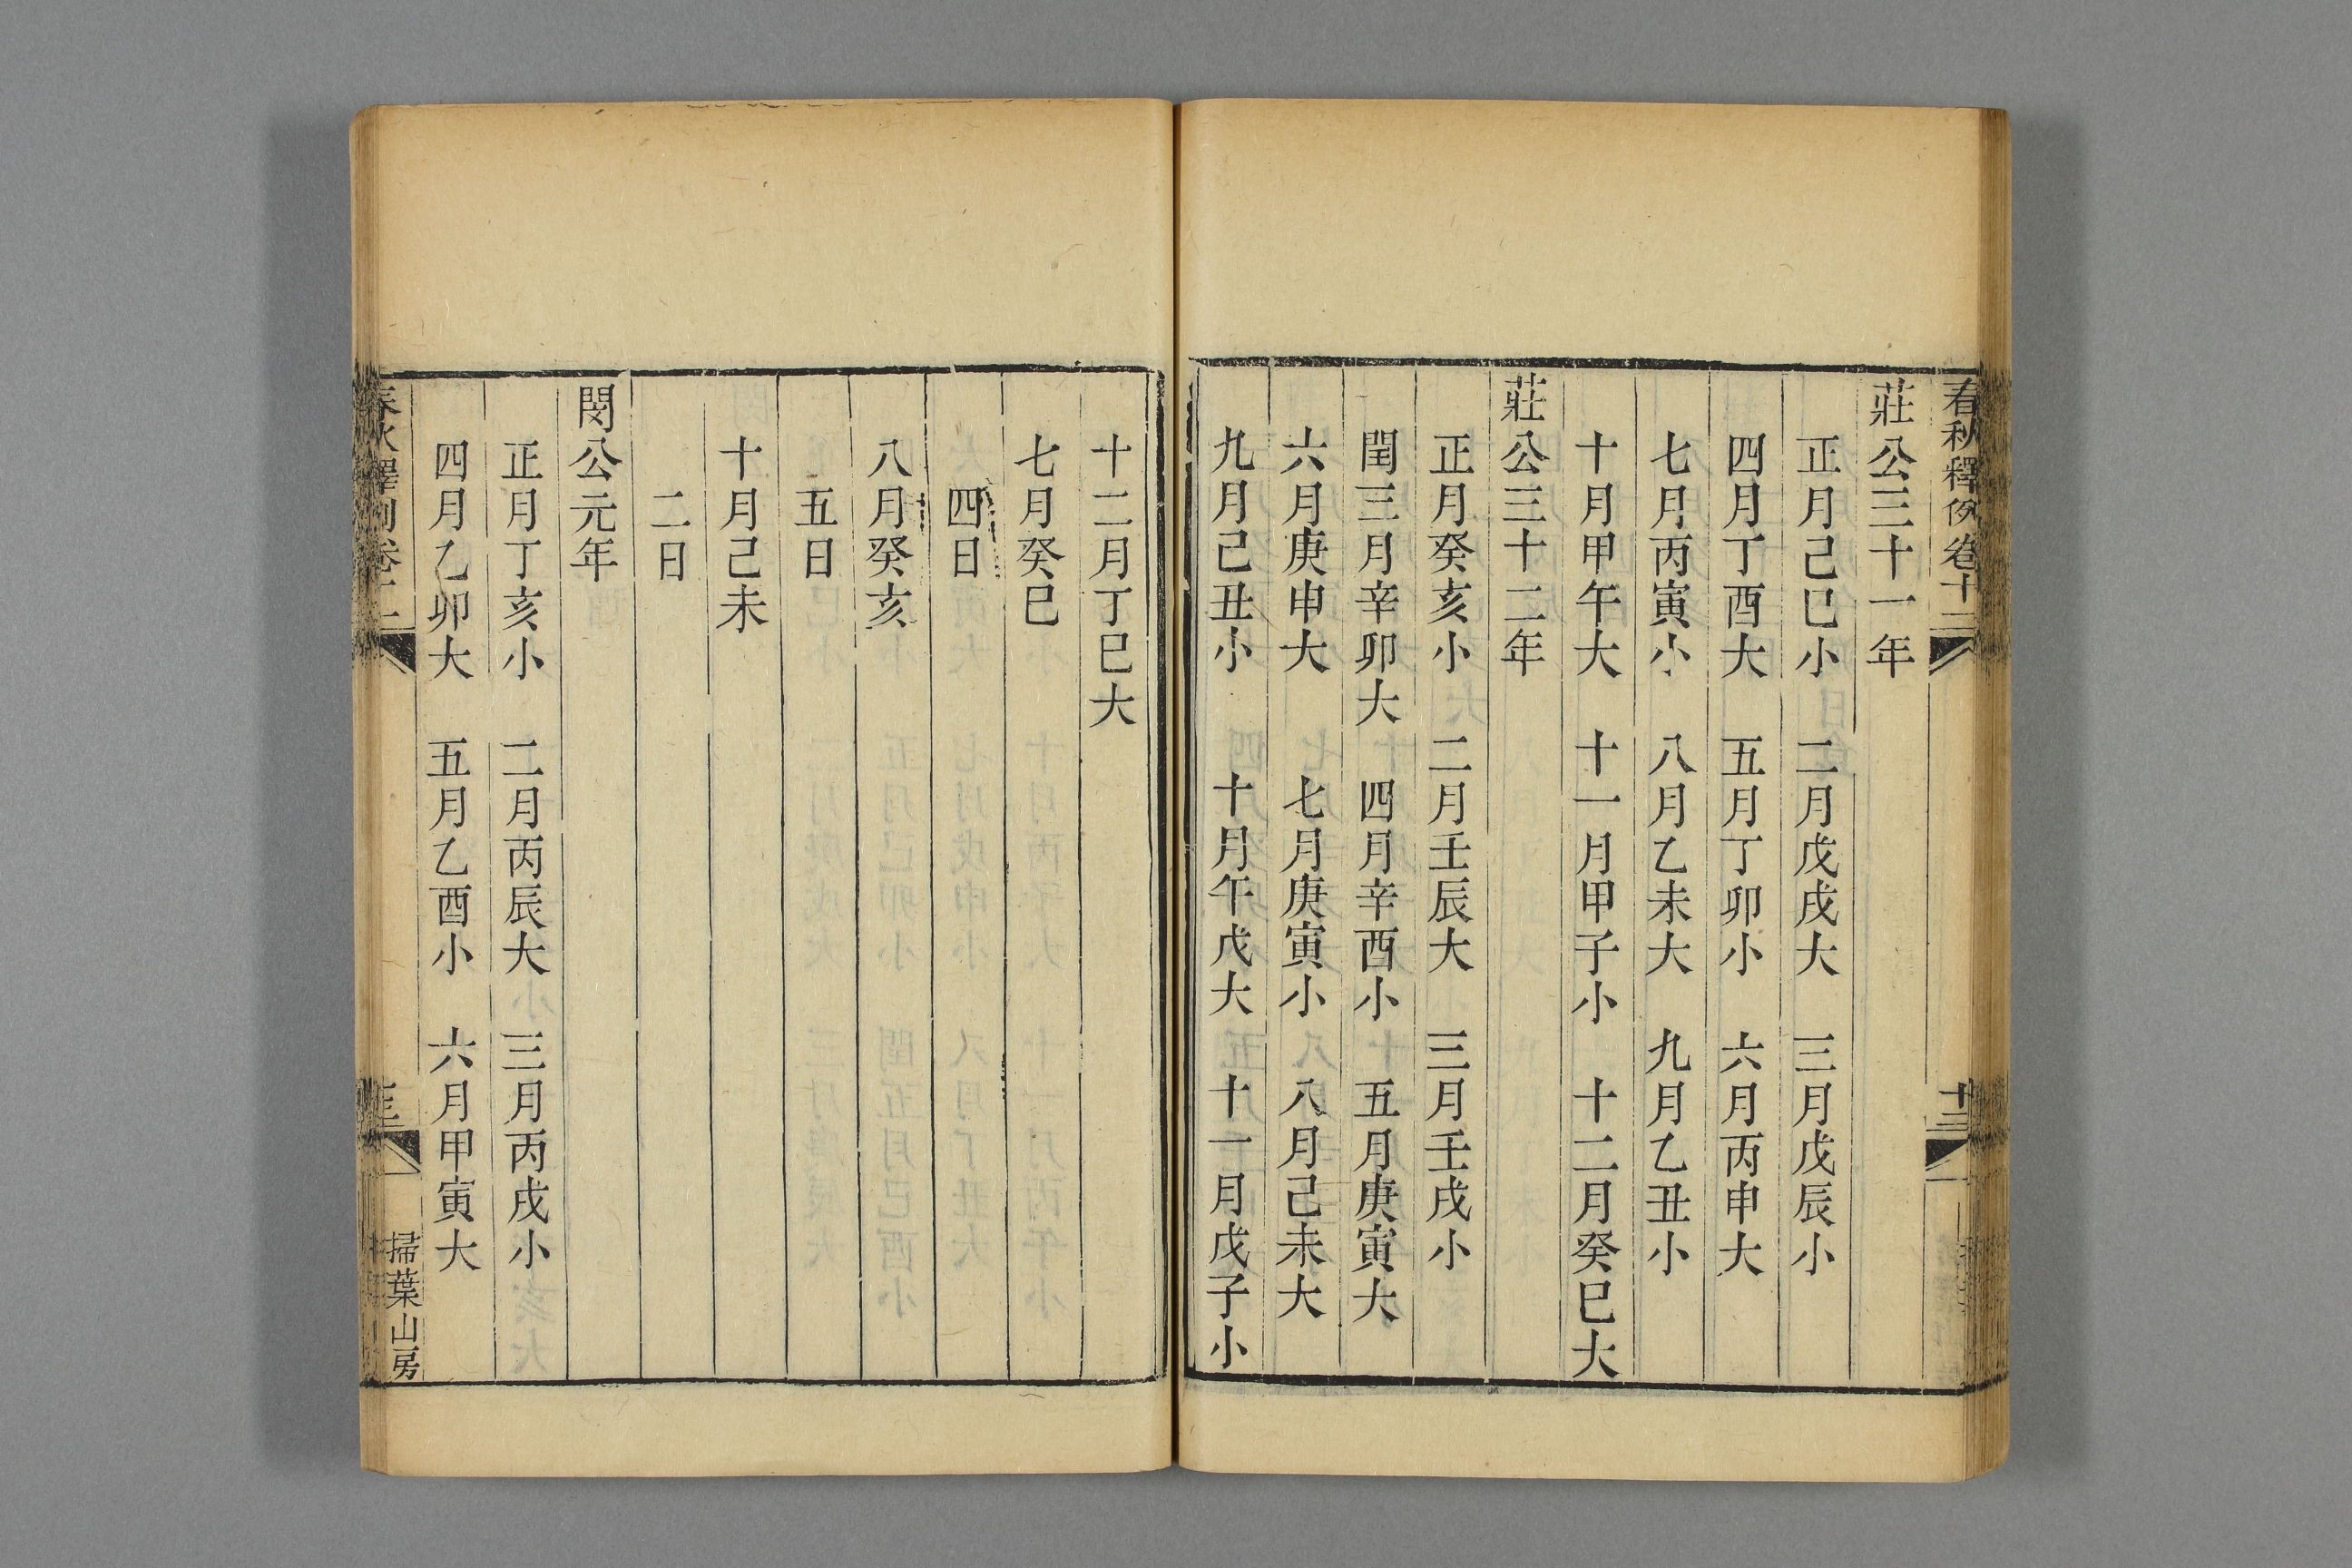 春秋釋例卷十二
十三
莊公三十一年
正月己巳小　二月戊戌大　三月戊辰小
四月丁酉大　五月丁卯小　六月丙申大
七月丙寅小　八月乙未大　九月乙丑小
十月甲午大　十一月甲子小　十二月癸巳大
莊公三十二年
正月癸亥小　二月壬辰大　三月壬戌小
閏三月辛卯大　四月辛酉小　五月庚寅大
六月庚申大　七月庚寅小　八月己未大
九月己丑小　十月午戊大　十一月戊子小
十二月丁巳大
七月癸巳
四日
八月癸亥
五日
十月己未
二日
閔公元年
正月丁亥小　二月丙辰大　三月丙戌小
四月乙卯大　五月乙酉小　六月甲寅大
春秋釋例卷十二
掃葉山房